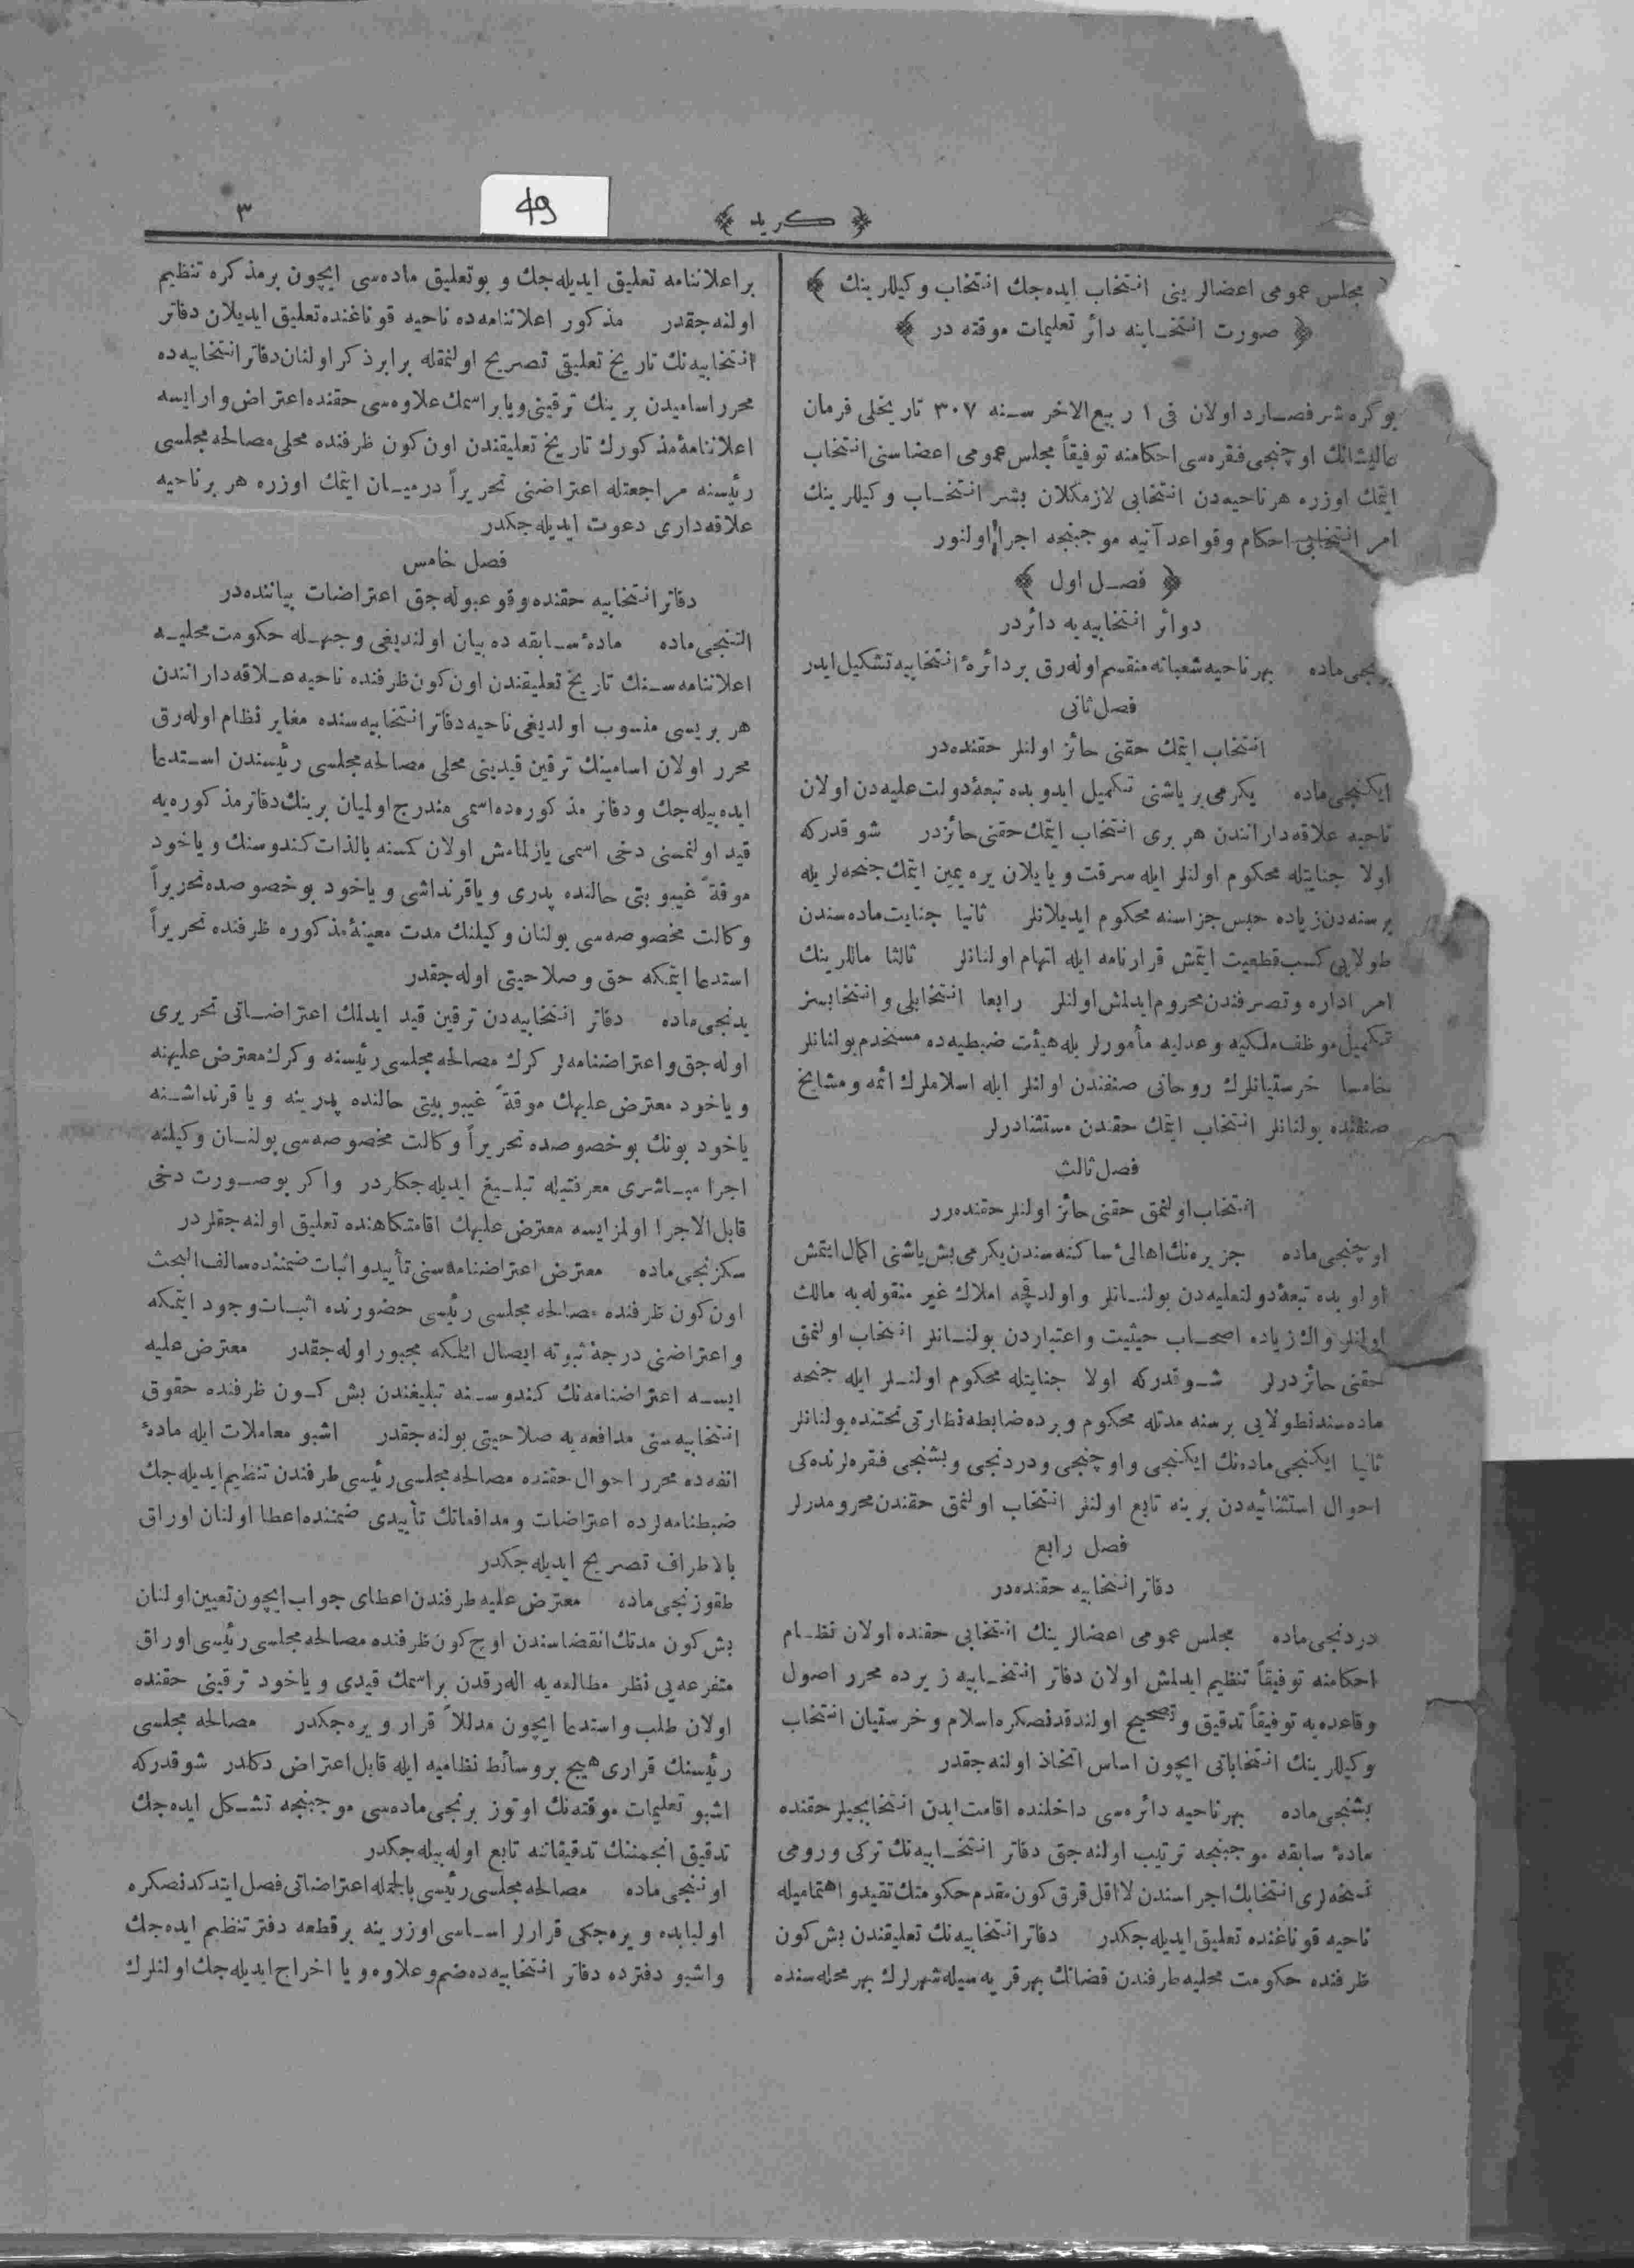 ﴿ كريد ﴾
49
٣
مجلس عمومى اعضالرينى انتخاب ايده‌جك انتخاب وكيللرينك ﴾
﴿ صورت انتخابنه دائر تعليمات موقته در ﴾
بوكره شرفصادر اولان فى ١ ربيع الاخر سنه ٣٠٧ تاريخلى فرمان
عاليشانك اوچنجى فقره‌سى احكامنه توفيقاً مجلس عمومى اعضاسنى انتخاب
ايتمك اوزره هر ناحيه‌دن انتخابى لازمكلان بشر انتخاب وكيللرينك
امر انتخابى احكام وقواعد آتيه موجبنجه اجرا اولنور
﴿ فصل اول ﴾
دوائر انتخابيه‌يه دائردر
برنجى ماده بهر ناحيه شعباته منقسم اوله‌رق بر دائرهٔ انتخابيه تشكيل ايدر
فصل ثانى
انتخاب ايتمك حقنى حائز اولنلر حقنده‌در
ايكنجى ماده يكرمى بر ياشنى تكميل ايدوبده تبعهٔ دولت عليه‌دن اولان
ناحيه علاقه‌دارانندن هر برى انتخاب ايتمك حقنى حائزدر شو قدركه
اولا جنايتله محكوم اولنلر ايله سرقت ويا يلان يره يمين ايتمك جنحه‌لريله
بر سنه‌دن زياده حبس جزاسنه محكوم ايديلانلر ثانيا جنايت ماده‌سندن
طولايى كسب قطعيت ايتمش قرارنامه ايله اتهام اولنانلر ثالثا ماللرينك
امر اداره وتصرفندن محروم ايدلمش اولنلر رابعا انتخابلى وانتخابسز
تكميل موظف ملكيه وعدليه مأمورلر يله هيئت ضبطيه‌ده مستخدم بولنانلر
خامسا خرستيانلرك روحانى صنفندن اولنلر ايله اسلاملرك ائمه ومشايخ
صنفنده بولنانلر انتخاب ايتمك حقندن مستثنادرلر
فصل ثالث
انتخاب اولنمق حقنى حائز اولنلر حقنده‌در
اوچنجى ماده جزيره‌نك اهالئ ساكنه‌سندن يكرمى بش ياشنى اكمال ايتمش
اولوبده تبعهٔ دولتعليه‌دن بولنانلر واولدقچه املاك غير منقوله‌يه مالك
اولنلر واك زياده اصحاب حيثيت واعتباردن بولنانلر انتخاب اولنمق
حقنى حائزدرلر شو قدركه اولا جنايتله محكوم اولنلر ايله جنحه
ماده‌سندنطولايى بر سنه مدتله محكوم وبرده ضابطه نظارتى تحتنده بولنانلر
ثانيا ايكنجى ماده‌نك ايكنجى واوچنجى ودردنجى وبشنجى فقره‌لرنده‌كى
احوال استثنائيه‌دن برينه تابع اولنلر انتخاب اولنمق حقندن محرومدرلر
فصل رابع
دفاتر انتخابيه حقنده‌در
دردنجى ماده مجلس عمومى اعضالرينك انتخابى حقنده اولان نظام
احكامنه توفيقاً تنظيم ايدلمش اولان دفاتر انتخابيه زيرده محرر اصول
وقاعده‌يه توفيقاً تدقيق وتصحيح اولندقدنصكره اسلام وخرستيان انتخاب
وكيللرينك انتخاباتى ايچون اساس اتخاذ اولنه‌جقدر
بشنجى ماده بهر ناحيه دائره‌سى داخلنده اقامت ايدن انتخابجيلر حقنده
مادهٔ سابقه موجبنجه ترتيب اولنه‌جق دفاتر انتخابيه‌نك تركى ورومى
نسخه‌لرى انتخابك اجراسندن لااقل قرق كون مقدم حكومتك تقيد واهتماميله
ناحيه قوناغنده تعليق ايديله‌جكدر دفاتر انتخابيه‌نك تعليقندن بش كون
ظرفنده حكومت محليه طرفندن قضانك بهر قريه‌سيله شهرلرك بهر محله‌سنده
بر اعلاننامه تعليق ايديله‌جك و بوتعليق ماده‌سى ايچون برمذكره تنظيم
اولنه‌جقدر مذكور اعلاننامه‌ده ناحيه قوناغنده تعليق ايديلان دفاتر
انتخابيه‌نك تاريخ تعليقى تصريح اولنمقله برابر ذكر اولنان دفاتر انتخابيه‌ده
محرر اساميدن برينك ترقينى ويا براسمك علاوه‌سى حقنده اعتراض وار ايسه
اعلاننامهٔ مذكورك تاريخ تعليقندن اون كون ظرفنده محلى مصالحه مجلسى
رئيسنه مراجعتله اعتراضنى تحريراً درميان ايتمك اوزره هر بر ناحيه
علاقه‌دارى دعوت ايديله‌جكدر
فصل خامس
دفاتر انتخابيه حقنده وقوعبوله‌جق اعتراضات بياننده‌در
التنجى ماده مادهٔ سابقه ده بيان اولنديغى وجهله حكومت محليه
اعلاننامه‌سنك تاريخ تعليقندن اون كون ظرفنده ناحيه علاقه‌دارانندن
هر بريسى منسوب اولديغى ناحيه دفاتر انتخابيه‌سنده مغاير نظام اوله‌رق
محرر اولان اسامينك ترقين قيدينى محلى مصالحه مجلسى رئيسندن استدعا
ايده‌بيله‌جك ودفاتر مذكوره‌ده اسمى مندرج اولميان برينك دفاتر مذكوره‌يه
قيد اولنمسنى دخى اسمى يازلمامش اولان كمسنه بالذات كندوسنك وياخود
موقةً غيبوبتى حالنده پدرى وياقرنداشى وياخود بوخصوصده تحريراً
وكالت مخصوصه‌سى بولنان وكيلنك مدت معينهٔ مذكوره ظرفنده تحريراً
استدعا ايتمكه حق وصلاحيتى اوله‌جقدر
يدنجى ماده دفاتر انتخابيه‌دن ترقين قيد ايدلمك اعتراضاتى تحريرى
اوله‌جق واعتراضنامه‌لر كرك مصالحه مجلسى رئيسنه وكرك معترض عليهنه
وياخود معترض عليهك موقةً غيبوبيتى حالنده پدرينه ويا قرنداشنه
ياخود بونك بوخصوصده تحريراً وكالت مخصوصه‌سى بولنان وكيلنه
اجرا مباشرى معرفتيله تبليغ ايديله‌جكلردر واكر بوصورت دخى
قابل الاجرا اولمز ايسه معترض عليهك اقامتكاهنده تعليق اولنه‌جقلردر
سكزنجى ماده معترض اعتراضنامه‌سنى تأييد واثبات ضمننده سالف البحث
اون كون ظرفنده مصالحه مجلسى رئيسى حضورنده اثبات وجود ايتمكه
واعتراضنى درجهٔ ثبوته ايصال ايتمكه مجبور اوله‌جقدر معترض عليه
ايسه اعتراضنامه‌نك كندوسنه تبليغندن بش كون ظرفنده حقوق
انتخابيه‌سنى مدافعه‌يه صلاحيتى بولنه‌جقدر اشبو معاملات ايله مادهٔ
انفه‌ده محرر احوال حقنده مصالحه مجلسى رئيسى طرفندن تنظيم ايديله‌جك
ضبطنامه‌لرده اعتراضات ومدافعاتك تأييدى ضمننده اعطا اولنان اوراق
بالاطراف تصريح ايديله‌جكدر
طقوزنجى ماده معترض عليه طرفندن اعطاى جواب ايچون تعيين اولنان
بش كون مدتك انقضاسندن اوچ كون ظرفنده مصالحه مجلسى رئيسى اوراق
متفرعه‌يى نظر مطالعه‌يه اله‌رقدن براسمك قيدى وياخود ترقينى حقنده
اولان طلب واستدعا ايچون مدللاً قرار ويره‌جكدر مصالحه مجلسى
رئيسنك قرارى هيچ بر وسائط نظاميه ايله قابل اعتراض دكلدر شوقدركه
اشبو تعليمات موقته‌نك اوتوز برنجى ماده‌سى موجبنجه تشكل ايده‌جك
تدقيق انجمننك تدقيقاتنه تابع اوله‌بيله‌جكدر
اوننجى ماده مصالحه مجلسى رئيسى بالجمله اعتراضاتى فصل ايتدكدنصكره
اولبابده ويره‌جكى قرارلر اساسى اوزرينه برقطعه دفتر تنظيم ايده‌جك
واشبو دفترده دفاتر انتخابيه‌ده ضم وعلاوه ويا اخراج ايديله‌جك اولنلرك